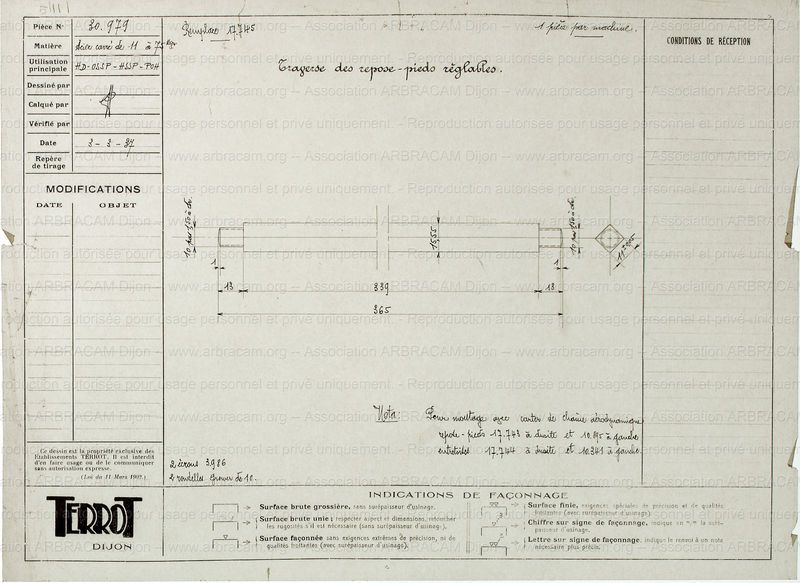 Pièce N° 30.979
Remplace 17.745
1 pièce par machine.
Matière acier carré de 11 à
Utilisation principale HD-OSSP-HSSP-POH
Dessiné par
Calqué par
Vérifié par
Date 3-3-37
Repère de tirage
CONDITIONS DE RÉCEPTION
Traverse des repose-pieds réglables.
MODIFICATIONS
DATE OBJET
10 pas 150 à dr.
15,55
10 pas 150 à dr.
1
1
13
339
13
365
Nota: Pour montage avec carter de chaîne aérodynamique
repose-pieds 17.743 à droite et à gauche
entretoises 17.744 à droite et 10341 à gauche.
2 écrous 3986
2 rondelles Grower de 10.
Ce dessin est la propriété exclusive des
Etablissements TERROT. Il est interdit
d'en faire usage ou de le communiquer
sans autorisation expresse.
(Loi du 11 Mars 1902.)
TERROT
DIJON
INDICATIONS DE FAÇONNAGE
Surface brute grossière, sans surépaisseur d'usinage.
Surface brute unie; respecter aspect et dimensions, retoucher
les rugosités s'il est nécessaire (sans surépaisseur d'usinage).
Surface façonnée sans exigences extrêmes de précision, ni de
qualités frottantes (avec surépaisseur d'usinage).
Surface finie, exigences spéciales de précision et de qualités
frottantes (avec surépaisseur d'usinage).
Chiffre sur signe de façonnage, indique en m/m la surépaisseur d'usinage.
Lettre sur signe de façonnage, indique le renvoi à un nota
nécessaire plus précis.
www.arbracam.org – Association ARBRACAM Dijon
Reproduction autorisée pour usage personnel et privé uniquement.